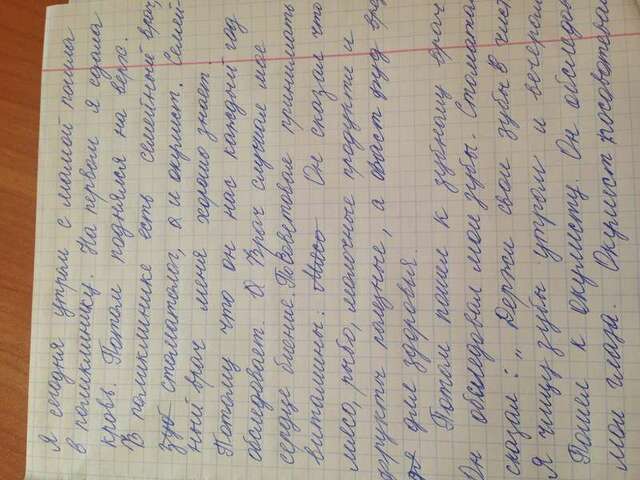 Я сегодня утром с мамой пошла
в поликлинику. На первом я сдала
кровь. Потом поднялся на верх.
В поликлинике есть семейные врач,
зуб стоматолог, а и окулист. Семей-
ный врач меня хорошо знает.
Потому что он нас каждый год
обследовает. О Врач случиал мое
сердце биение. Посоветовал принимать
витамины. Мясо Он сказал что
мясо, рыбо, молочные продукти и
фрукты полезные, а фаст фуд вред
дя для здоровья.
Потом пошел к зубному врач
Он обследовал мои зубы. Стоматол
сказал: „Держи свои зубы в чист
Я чищу зубы утром и вечером
Пошел к окулисту. Он обследов
мои глаза. Окулист посоветовал